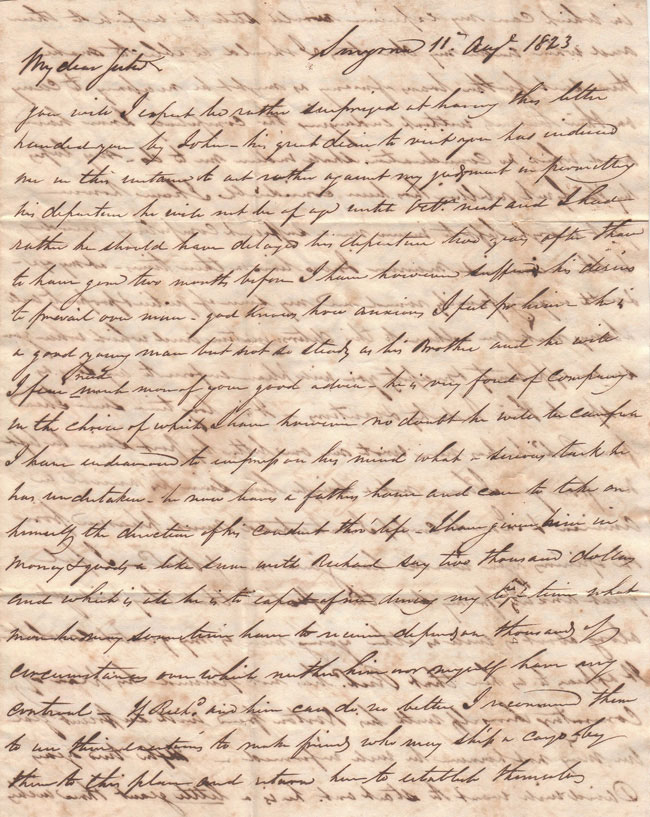 Smyrna 11th Augt. 1823
My dear Sister
you will I expect be rather surprized at having this letter
handed you by John - his great desire to visit you has induced
me in this instance to act rather against my judgment in permitting
his departure he will not be of age until Octr. next and I had
rather he should have delayed his departure two years after than
to have gone two months before I have however suffered his desires
to prevail over mine - god knows how anxious I feel for him - he is
a good young man but not so steady as his Brother and he will
I fear need much more of your good advice - he is very fond of Company
in the choice of which I have however no doubt he will be careful
I have endeavoured to impress on his mind what a serious task he
has undertaken - he now leaves a fathers house and care to take on
himself the direction of his conduct thro' life - I have given him in
money & goods a like sum with Richard say two thousand dollars
and which is all he is to expect of me during my life time what
more he may sometime have to receive depends on thousands of
circumstances over which neither him nor myself have any
control - If Richd. and him can do no better I recommend them
to use their exertions to make friends who may ship a cargo by
them to this place and return here to establish themselves